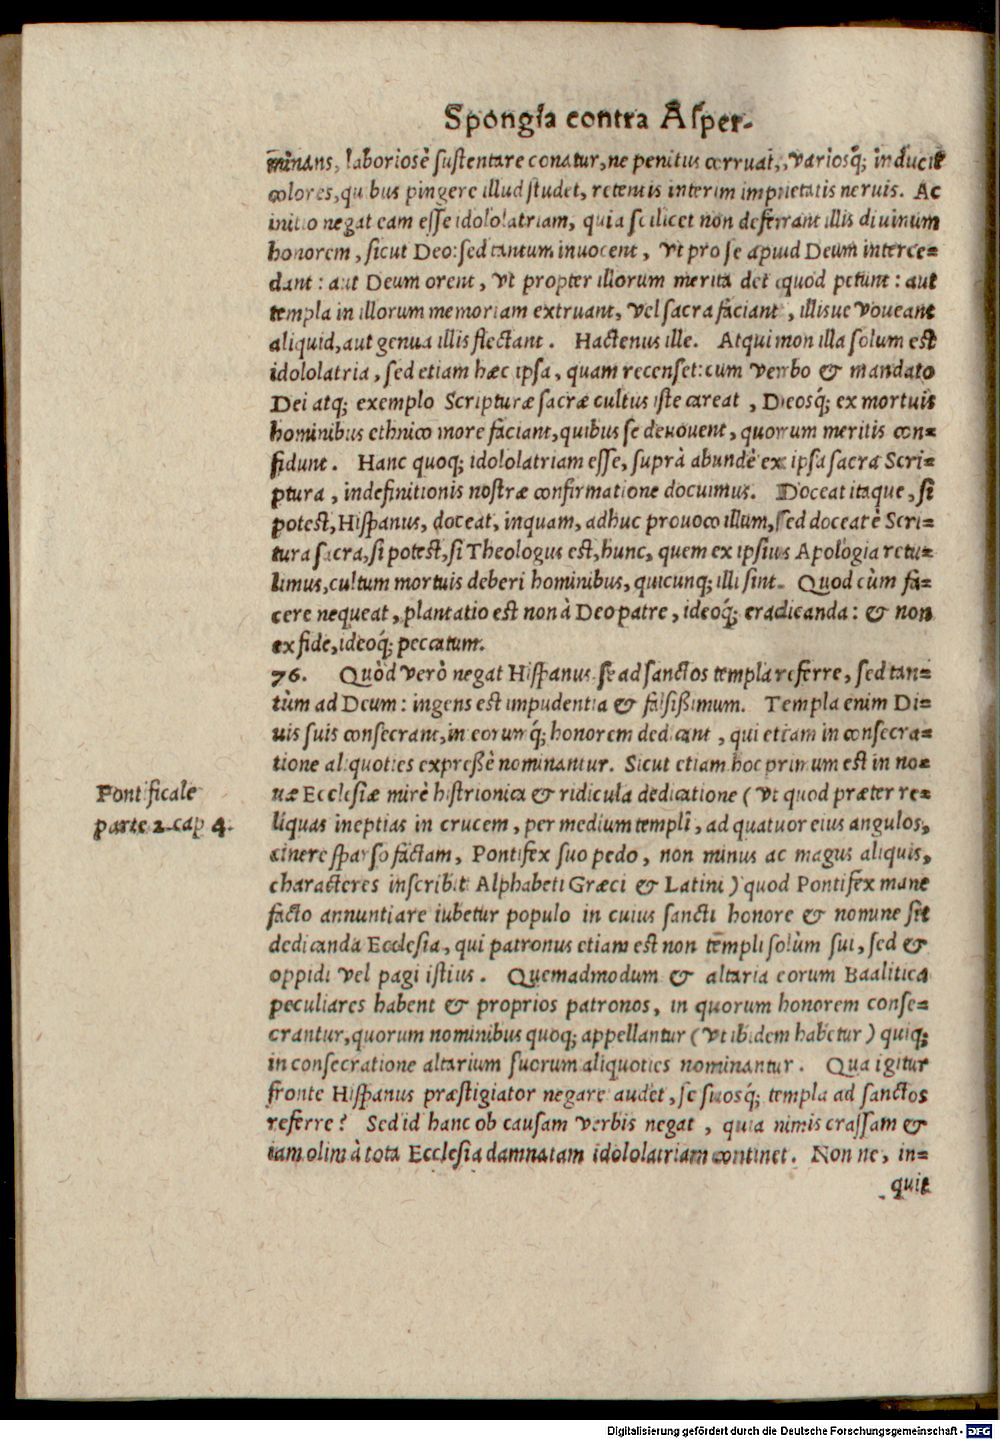 Spongia contra Asper-
minans, laboriosè sustentare conatur, ne penitus corruat, variosq́; inducit
colores, quibus pingere illud studet, retentis interim impietatis neruis. Ac
initio negat eam esse idololatriam, quia scilicet non deferant illis diuinum
honorem, sicut Deo: sed tantum inuocent, vt pro se apud Deum interce-
dant: aut Deum orent, vt propter illorum merita det quod petunt: aut
templa in illorum memoriam extruant, vel sacra faciant, illisue voueant
aliquid, aut genua illis flectant. Hactenus ille. Atqui non illa solum est
idololatria, sed etiam hæc ipsa, quam recenset: cum verbo & mandato
Dei atq; exemplo Scripturæ sacræ cultus iste careat, Deosq́; ex mortuis
hominibus ethnico more faciant, quibus se deuouent, quorum meritis con-
fidunt. Hanc quoq; idololatriam esse, suprà abundè ex ipsa sacra Scri-
ptura, in definitionis nostræ confirmatione docuimus. Doceat itaque, si
potest, Hispanus, doceat, inquam, adhuc prouoco illum, sed doceat è Scri-
tura sacra, si potest, si Theologus est, hunc, quem ex ipsius Apologia retu-
limus, cultum mortuis deberi hominibus, quicunq; illi sint. Quod cùm fa-
cere nequeat, plantatio est non à Deo patre, ideoq́; eradicanda: & non
ex fide, ideoq́; peccatum.
76. Quòd verò negat Hispanus se ad sanctos templa referre, sed tan-
tùm ad Deum: ingens est impudentia & falsißimum. Templa enim Di-
uis suis consecrant, in eorumq́; honorem dedicant, qui etiam in consecra-
tione aliquoties expreßè nominantur. Sicut etiam hoc primum est in no-
uæ Ecclesiæ mirè histrionica & ridicula dedicatione (vt quod præter re-
liquas ineptias in crucem, per medium templi, ad quatuor eius angulos,
cinere sparso factam, Pontifex suo pedo, non minus ac magus aliquis,
characteres inscribit Alphabeti Græci & Latini) quod Pontifex mane
facto annuntiare iubetur populo in cuius sancti honore & nomine sit
dedicanda Ecclesia, qui patronus etiam est non templi solùm sui, sed &
oppidi vel pagi istius. Quemadmodum & altaria eorum Baalitica
peculiares habent & proprios patronos, in quorum honorem conse-
crantur, quorum nominibus quoq; appellantur (vt ibidem habetur) quiq;
in consecratione altarium suorum aliquoties nominantur. Qua igitur
fronte Hispanus præstigiator negare audet, se suosq́; templa ad sanctos
referre? Sed id hanc ob causam verbis negat, quia nimis crassam &
iam olim à tota Ecclesia damnatam idololatriam continet. Non ne, in-
quit
Pontificale
parte 2. cap 4.
Digitalisierung gefördert durch die Deutsche Forschungsgemeinschaft - DFG